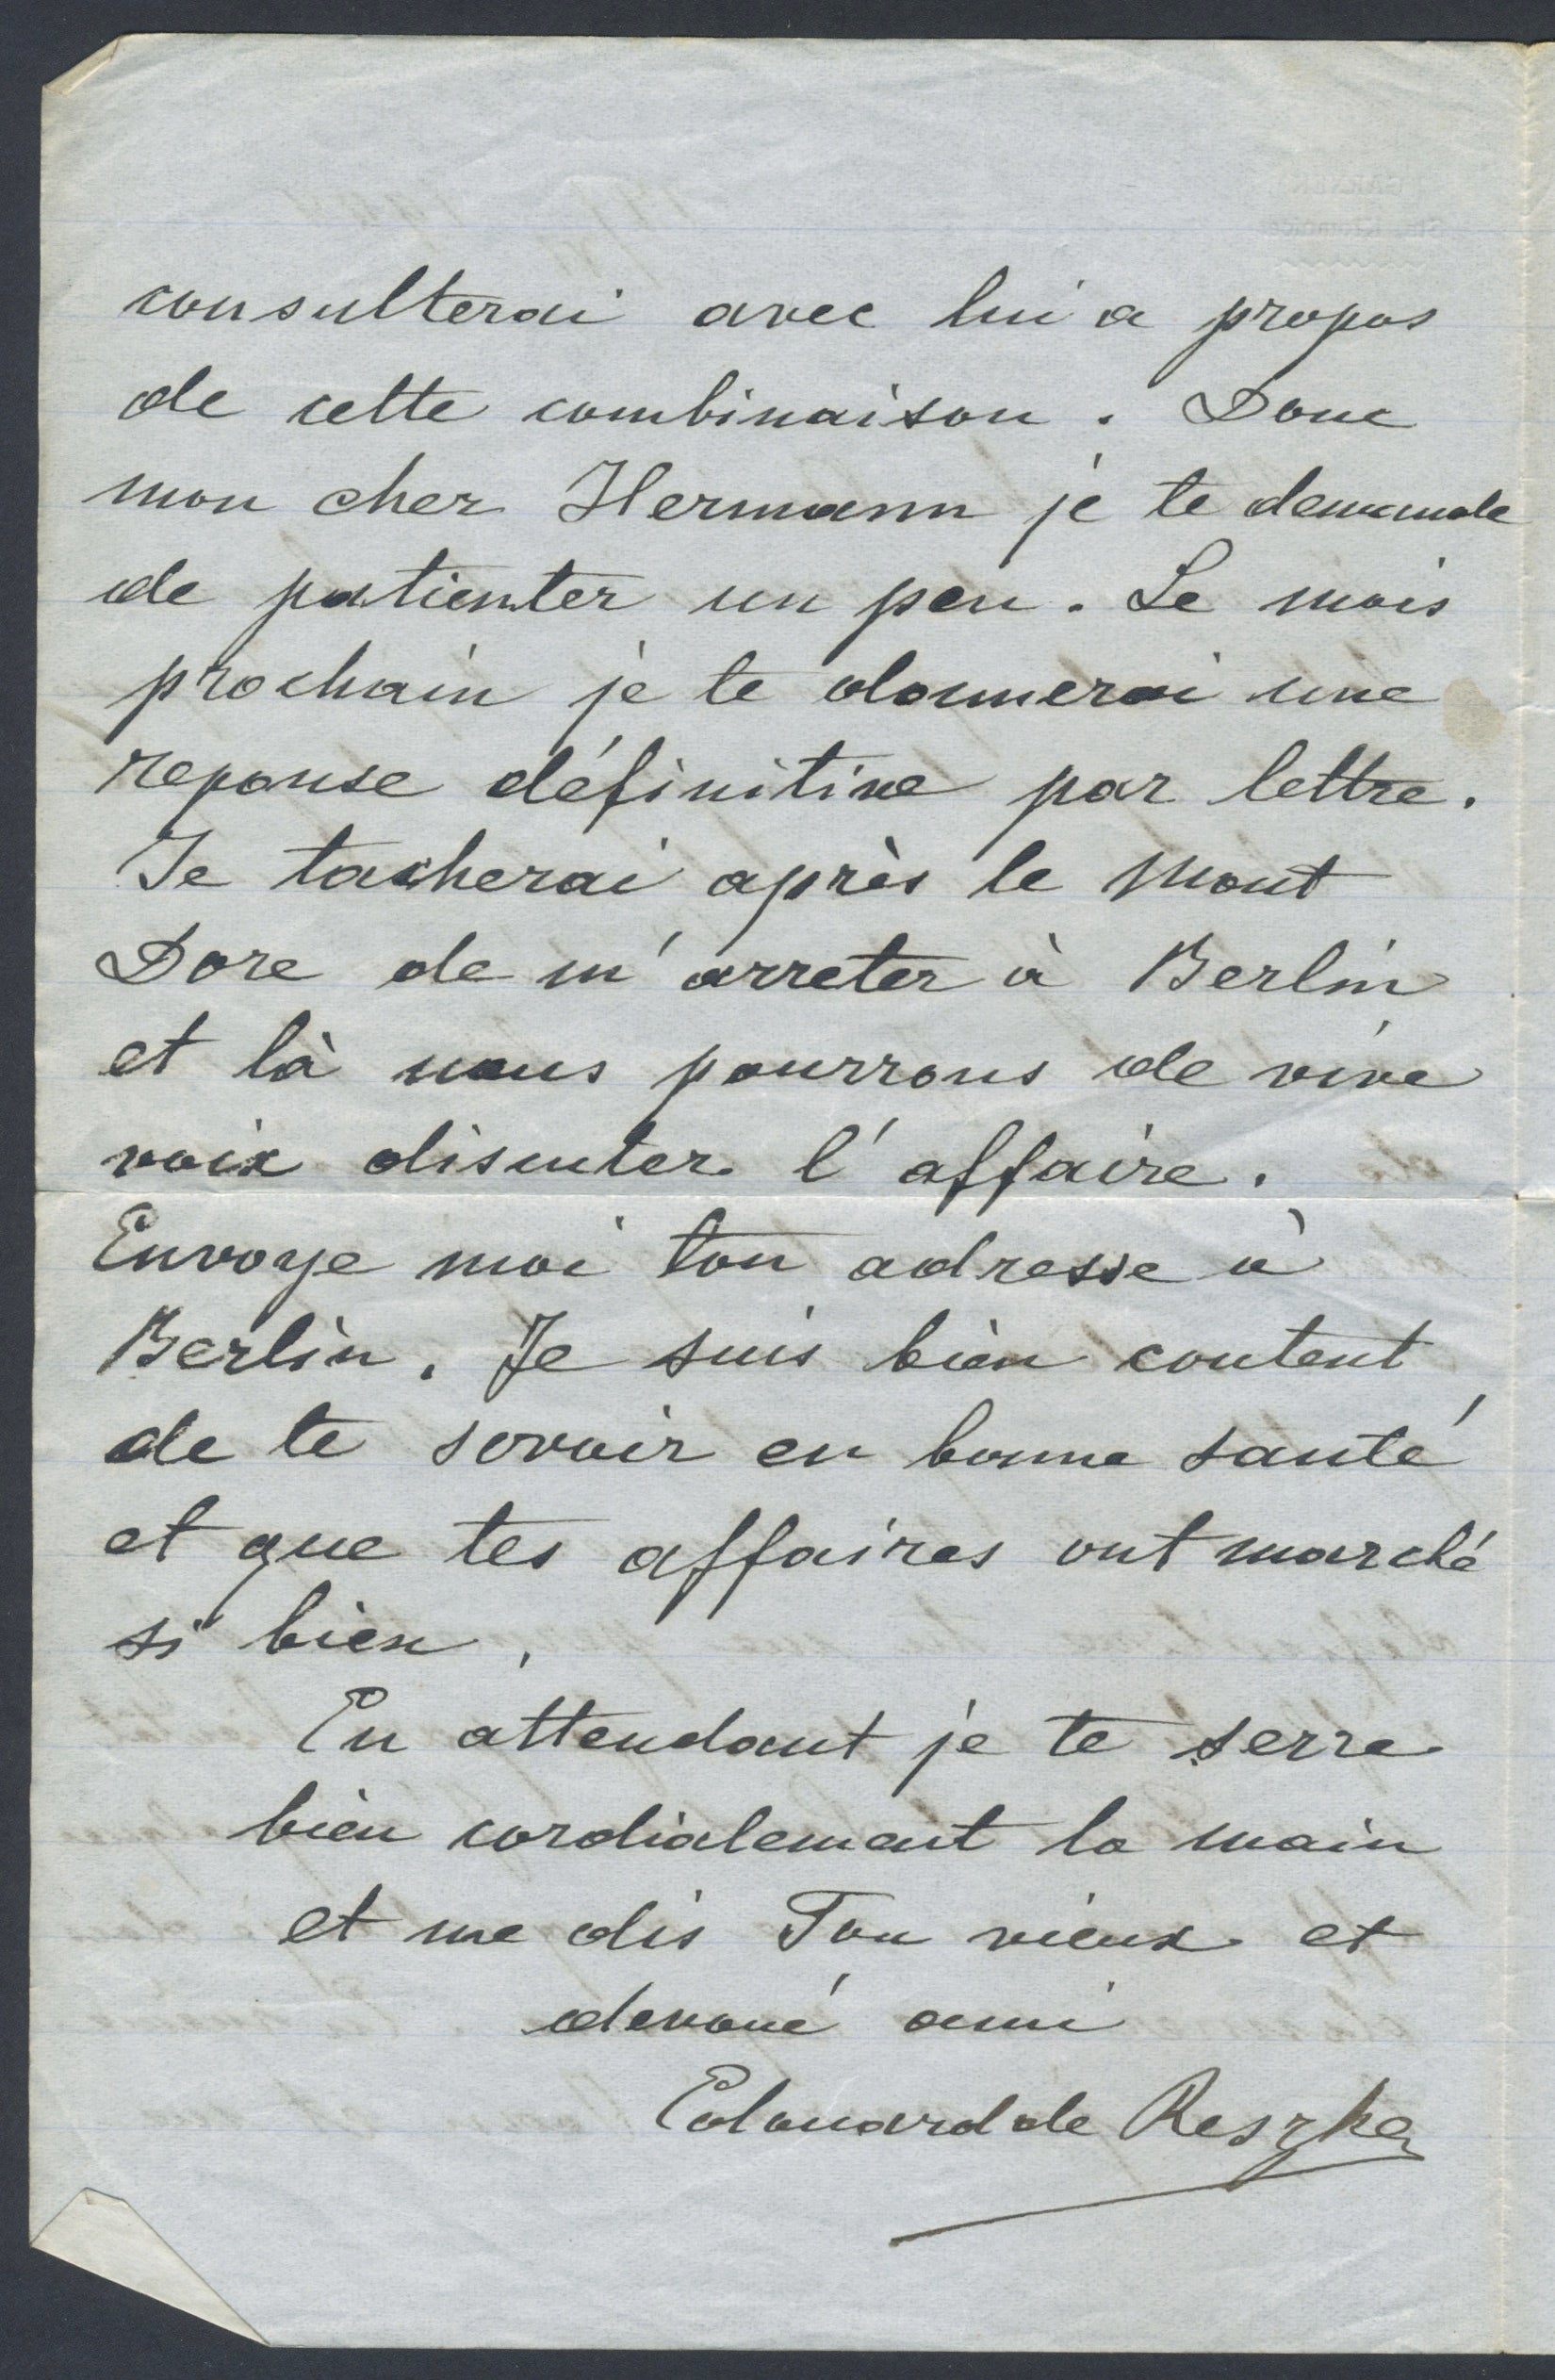 consulterai avec lui a propos
de cette combinaison. Donc
mon cher Hermann je te demande
de patienter un peu. Le mois
prochain je te donnerai une
reponse définitive par lettre.
Je tacherai après le Mont
Dore de m'arreter à Berlin
et là nous pourrons de vive
voix discuter l'affaire.
Envoye moi ton adresse à
Berlin. Je suis bien content
de te savoir en bonne santé
et que tes affaires ont marché
si bien.
En attendant je te serre
bien cordialement la main
et me dis Ton vieux et
devoué ami
Edouard de Reszke